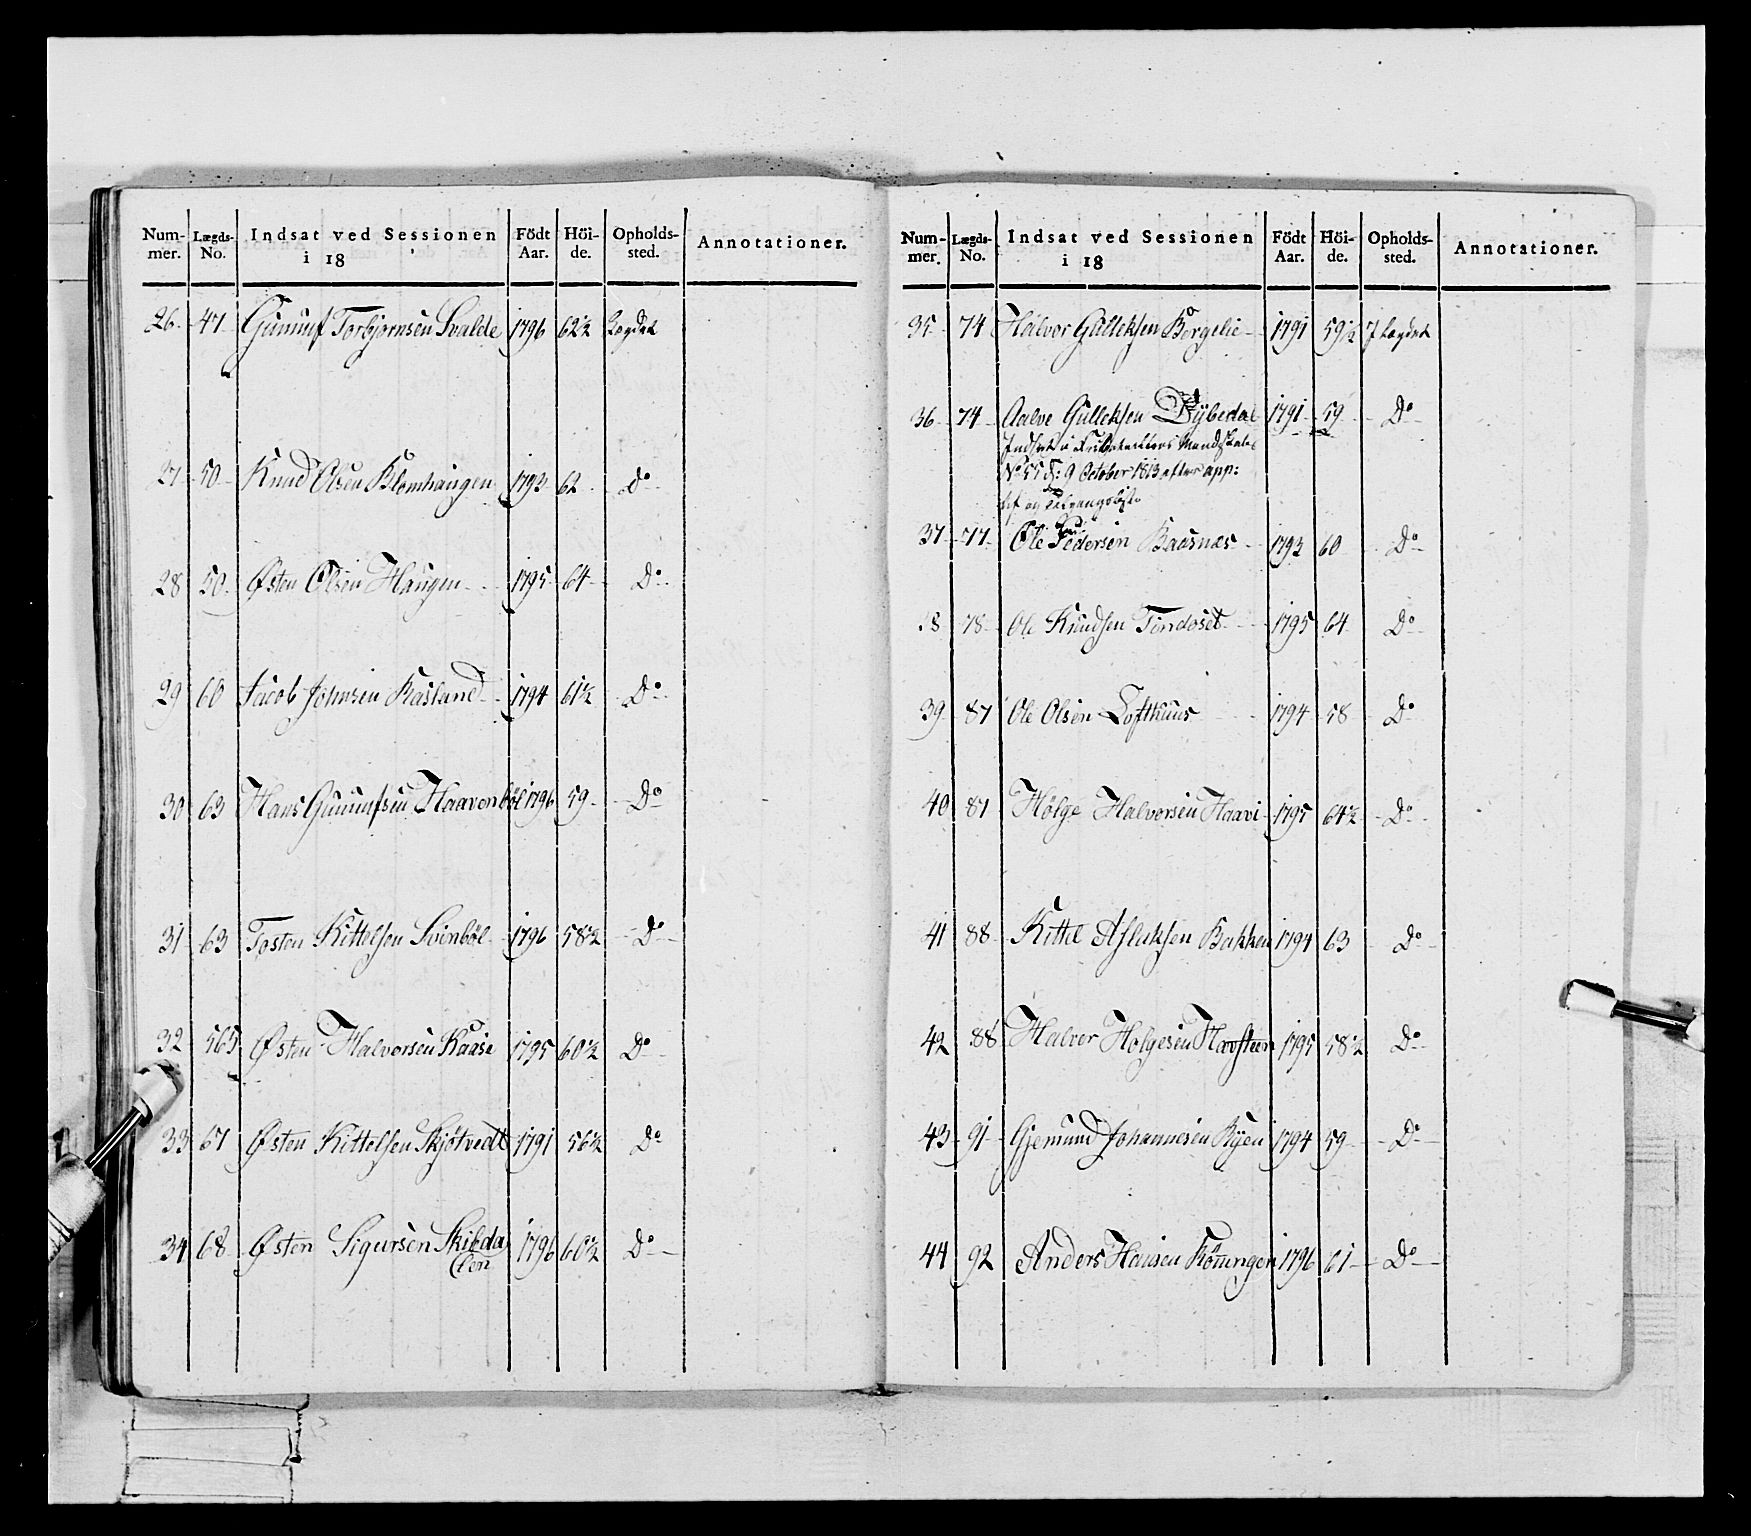 Num- Lægds- Indsat ved Sessionen Födt Höi- Opholds- Annotationer.
mer. No. i 18 Aar. de. sted.
26. 47. Gunnuf Torbjornsen Svalde 1796 62½ Lægdet
27 50 Knud Olsen Blomhaugen 1793 62 D°
28 50 Østen Olsen Haugen 1795 64 D°
29 60 Jacob Johnsen Kasland 1794 61½ D°
30 63 Hans Gunnufsen Haavenböl 1796 59 D°
31 63 Tosten Kittelsen Svinböl 1796 58½ D°
32 565 Østen Halvorsen Kaasa 1795 60½ D°
33 67 Østen Kittelsen Skjötvedt 1791 56½ D°
34 68 Østen Sigursen Skilda 1796 60½ D°
len
Num- Lægds- Indsat ved Sessionen Födt Höi- Opholds- Annotationer.
mer. No. i 18 Aar. de. sted.
35 74 Halvor Gulleksen Bergelie 1791 59½ I Lægdet
36 74 Aalve Gulleksen Dybedal 1791 59 D°
Indsat i Mandskab
No 55 d: 9 October 1813 efter app:
og Udgangsliste
37 77 Ole Pedersen Baasnæs 1793 60 D°
38 78 Ole Knudsen Tindoset 1795 64 D°
39 87 Ole Olsen Lofthuus 1794 58 D°
40 87 Holge Halvorsen Haavi 1795 64½ D°
41 88 Kittel Aslaksen Bakken 1794 63 D°
42 88 Halvor Holgesen Havsteen 1795 58½ D°
43 91 Gjemund Johannesen Ryen 1794 59 D°
44 92 Anders Hansen Könningen 1796 61 D°